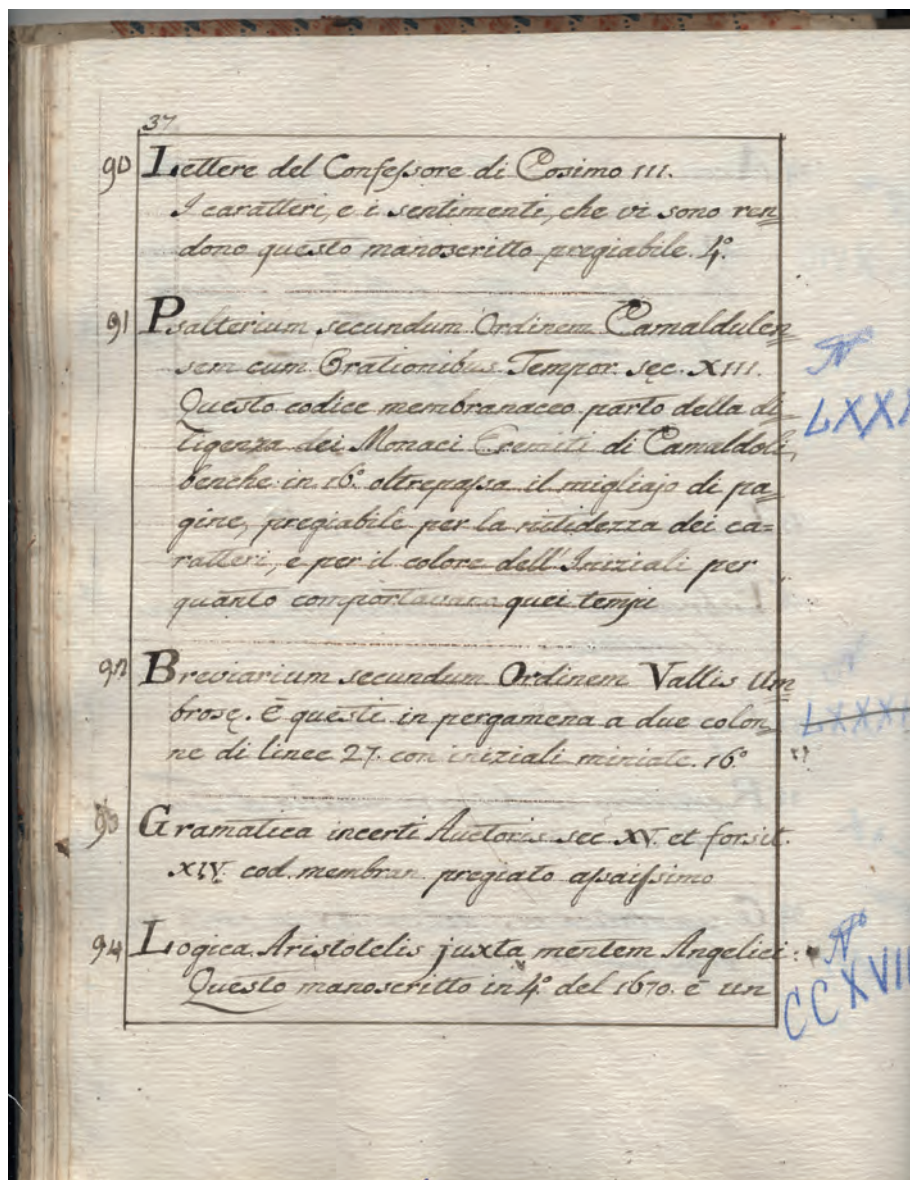 37
90 Lettere del Confessore di Cosimo III.
I caratteri, e i sentimenti, che vi sono ren=
dono questo manoscritto pregiabile. 4º
91 Psalterium secundum Ordinem Camaldulen=
sem cum Orationibus Tempor. sęc. XIII.
Nº
Questo codice membranaceo parto della di=
LXXX
ligenza dei Monaci Eremiti di Camaldoli,
benche in 16º oltrepassa il migliajo di pa=
gine, pregiabile per la nitidezza dei ca=
ratteri, e per il colore dell' Iniziali per
quanto comportavano quei tempi
92 Breviarium secundum Ordinem Vallis Um=
brosę. È questi in pergamena a due colon=
LXXXI
ne di linee 27. con iniziali miniate. 16º
93 Gramatica incerti Auctoris sec. XV. et forsit.
XIV. cod. membran. pregiato assaissimo
94 Logica Aristotelis juxta mentem Angelici:
Nº
Questo manoscritto in 4º del 1670. è un
CCXVII